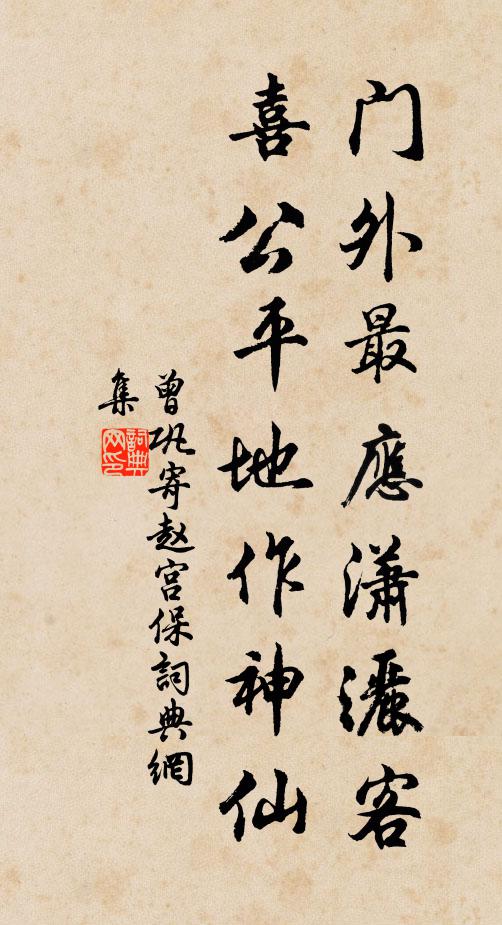 门外最應瀟灑客
喜公平地作神仙
曾巩寄赵宫保詞典網
集
詞典
网印